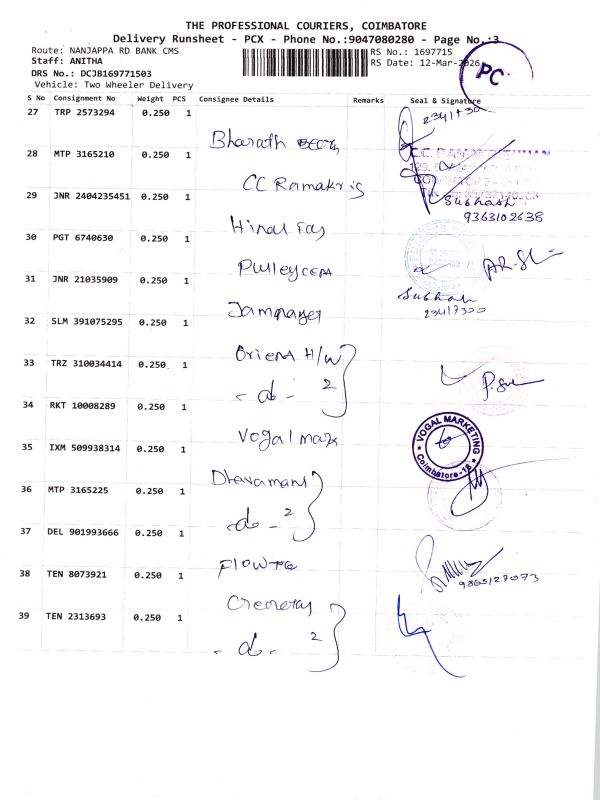 THE PROFESSIONAL COURIERS, COIMBATORE
Delivery Runsheet - PCX - Phone No.:9047080280 - Page No.:3
Route: NANJAPPA RD BANK CMS
RS No.: 1697715
Staff: ANITHA
RS Date: 12-Mar-2026
DRS No.: DCJB169771503
Vehicle: Two Wheeler Delivery
PC
S No Consignment No Weight PCS Consignee Details Remarks Seal & Signature
27 TRP 2573294 0.250 1 Bharath
28 MTP 3165210 0.250 1 CC Ramakris
29 JNR 2404235451 0.250 1 Subhash
9363102638
30 PGT 6740630 0.250 1
31 JNR 21035909 0.250 1 Jamnager
32 SLM 391075295 0.250 1 Orient H/W
33 TRZ 310034414 0.250 1 - do - 2
34 RKT 10008289 0.250 1 Vogal mark
VOGAL MARKETING
Coimbatore-18
35 IXM 509938314 0.250 1 Dhavamani
36 MTP 3165225 0.250 1 - do - 2
37 DEL 901993666 0.250 1
38 TEN 8073921 0.250 1
9865127073
39 TEN 2313693 0.250 1 - do - 2